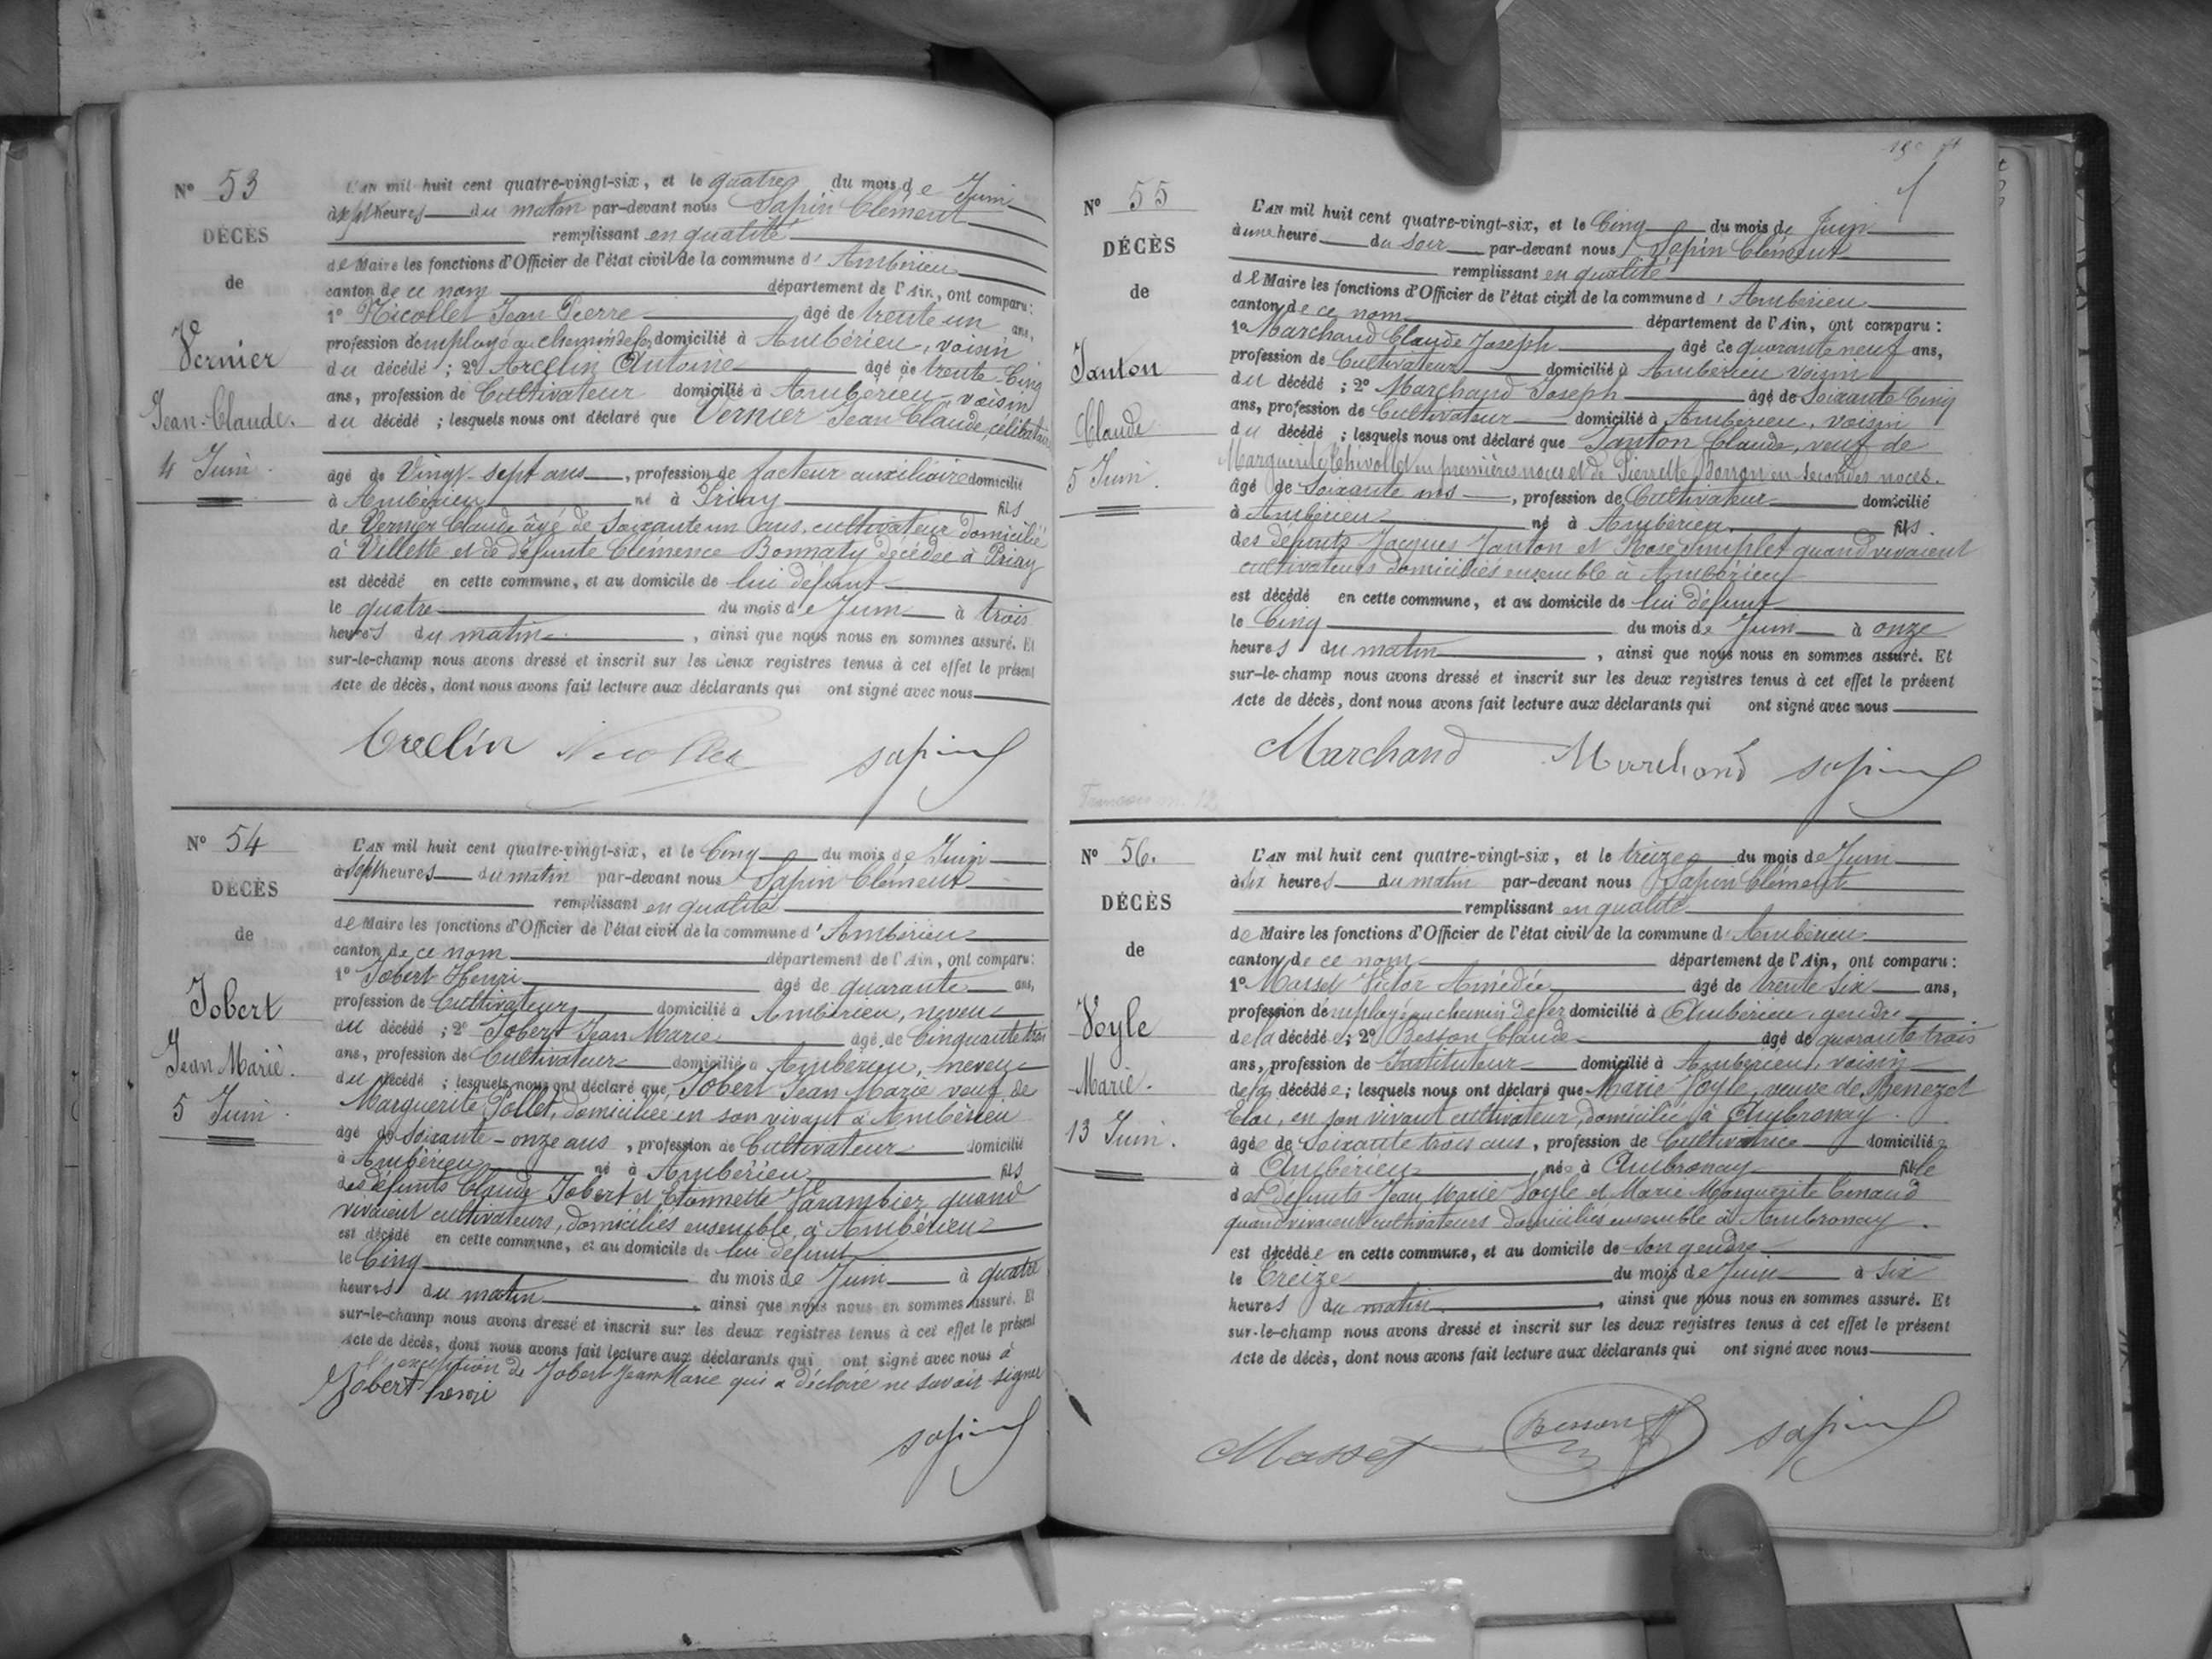 Nº 53
DÉCÈS
de
Vernier
Jean-Claude.
4 Juin.
L'AN mil huit cent quatre-vingt-six, et le quatre du mois de Juin
à sept heures du matin par-devant nous Sapin Clément
remplissant en qualité
de Maire les fonctions d'Officier de l'état civil de la commune d'Ambérieu
canton de ce nom département de l'Ain, ont comparu:
1º Nicollet Jean Pierre âgé de trente un ans,
profession d'employé au chemin de fer, domicilié à Ambérieu, voisin
du décédé ; 2º Arcelin Antoine âgé de trente-Cinq
ans, profession de Cultivateur domicilié à Ambérieu, voisin
du décédé ; lesquels nous ont déclaré que Vernier Jean Claude, célibataire
âgé de Vingt-sept ans, profession de facteur auxiliaire domicilié
à Ambérieu né à Priay fils
de Vernier Claude âgé de Soixante un ans, cultivateur domicilié
à Villette et de défunte Clémence Bonnaty décédée à Priay
est décédé en cette commune, et au domicile de lui défunt
le quatre du mois de Juin à trois
heures du matin, ainsi que nous nous en sommes assuré. Et
sur-le-champ nous avons dressé et inscrit sur les deux registres tenus à cet effet le présent
Acte de décès, dont nous avons fait lecture aux déclarants qui ont signé avec nous
Arcelin Nicollet Sapin
Nº 54
DÉCÈS
de
Jobert
Jean Marie.
5 Juin.
L'AN mil huit cent quatre-vingt-six, et le Cinq du mois de Juin
à sept heures du matin par-devant nous Sapin Clément
remplissant en qualité
de Maire les fonctions d'Officier de l'état civil de la commune d'Ambérieu
canton de ce nom département de l'Ain, ont comparu:
1º Jobert Henri âgé de quarante ans,
profession de Cultivateur domicilié à Ambérieu, neveu
du décédé ; 2º Jobert Jean Marie âgé de Cinquante trois
ans, profession de Cultivateur domicilié à Ambérieu, neveu
du décédé ; lesquels nous ont déclaré que Jobert Jean Marie veuf de
Marguerite Pollet, domiciliée en son vivant à Ambérieu
âgé de Soixante-onze ans, profession de Cultivateur domicilié
à Ambérieu né à Ambérieu fils
des défunts Claude Jobert et Etiennette Varambier quand
vivaient cultivateurs, domiciliés ensemble, à Ambérieu
est décédé en cette commune, et au domicile de lui défunt
le Cinq du mois de Juin à quatre
heures du matin, ainsi que nous nous en sommes assuré. Et
sur-le-champ nous avons dressé et inscrit sur les deux registres tenus à cet effet le présent
Acte de décès, dont nous avons fait lecture aux déclarants qui ont signé avec nous à
l'exception de Jobert Jean Marie qui a déclaré ne savoir signer
Jobert henri
Sapin
Nº 55
DÉCÈS
de
Janton
Claude
5 Juin.
L'AN mil huit cent quatre-vingt-six, et le Cinq du mois de Juin
à une heure du soir par-devant nous Sapin Clément
remplissant en qualité
de Maire les fonctions d'Officier de l'état civil de la commune d'Ambérieu
canton de ce nom département de l'Ain, ont comparu:
1º Marchand Claude Joseph âgé de quarante neuf ans,
profession de Cultivateur domicilié à Ambérieu voisin
du décédé ; 2º Marchand Joseph âgé de Soixante Cinq
ans, profession de Cultivateur domicilié à Ambérieu, voisin
du décédé ; lesquels nous ont déclaré que Janton Claude, veuf de
Marguerite Chivollet en premières noces et de Pierrette Borron en secondes noces.
âgé de Soixante ans, profession de Cultivateur domicilié
à Ambérieu né à Ambérieu fils
des défunts Jacques Janton et Rose Simplet quand vivaient
cultivateurs domiciliés ensemble à Ambérieu
est décédé en cette commune, et au domicile de lui défunt
le Cinq du mois de Juin à onze
heures du matin, ainsi que nous nous en sommes assuré. Et
sur-le-champ nous avons dressé et inscrit sur les deux registres tenus à cet effet le présent
Acte de décès, dont nous avons fait lecture aux déclarants qui ont signé avec nous
Marchand Marchand Sapin
Nº 56.
DÉCÈS
de
Voyle
Marie.
13 Juin.
L'AN mil huit cent quatre-vingt-six, et le treize du mois de Juin
à six heures du matin par-devant nous Sapin Clément
remplissant en qualité
de Maire les fonctions d'Officier de l'état civil de la commune d'Ambérieu
canton de ce nom département de l'Ain, ont comparu:
1º Masset Victor Amédée âgé de trente six ans,
profession d'employé au chemin de fer domicilié à Ambérieu, gendre
de la décédée; 2º Besson Claude âgé de quarante trois
ans, profession de Instituteur domicilié à Ambérieu, voisin
de la décédée; lesquels nous ont déclaré que Marie Voyle, veuve de Benezet
Eloi, en son vivant cultivateur, domicilié à Ambronay.
âgée de Soixante trois ans, profession de Cultivatrice domiciliée
à Ambérieu, née à Ambronay fille
des défunts Jean Marie Voyle et Marie Marguerite Cenaud
quand vivaient cultivateurs domiciliés ensemble à Ambronay.
est décédée en cette commune, et au domicile de son gendre
le Treize du mois de Juin à six
heures du matin, ainsi que nous nous en sommes assuré. Et
sur-le-champ nous avons dressé et inscrit sur les deux registres tenus à cet effet le présent
Acte de décès, dont nous avons fait lecture aux déclarants qui ont signé avec nous
Masset Besson Sapin